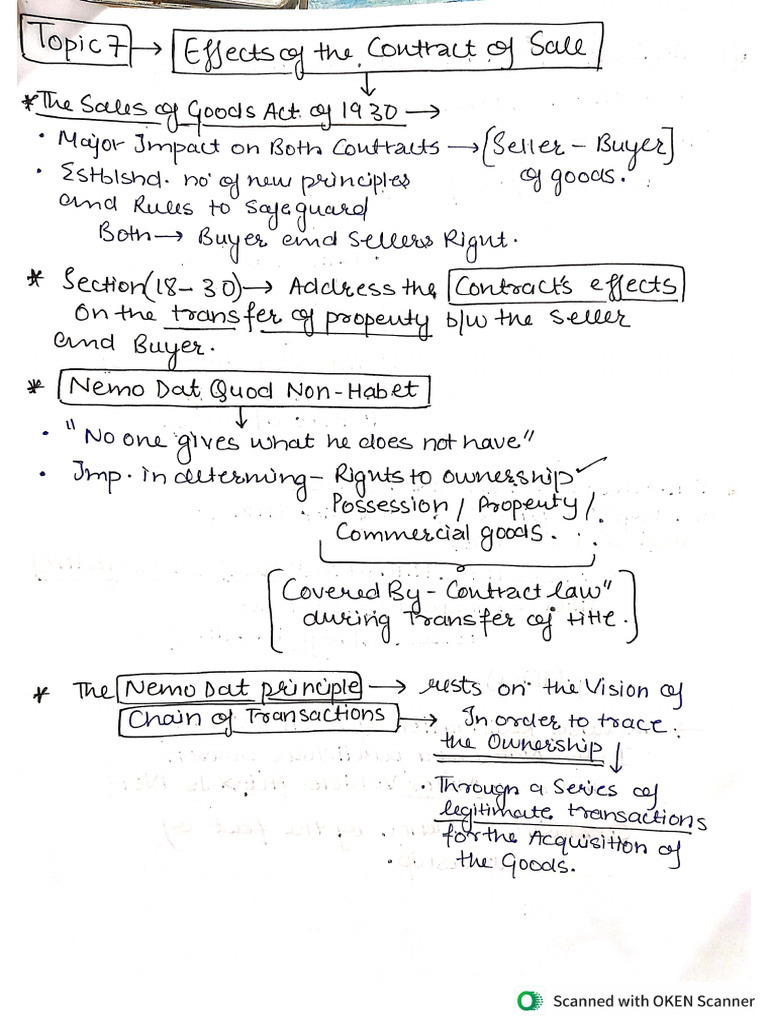 Topic 7 → Effects of the Contract of Sale
* The Sales of Goods Act of 1930 →
• Major Impact on Both Contracts → [Seller - Buyer]
of goods.
• Estblshd. no of new principles
and Rules to Safeguard
Both → Buyer and Sellers Right.
* Section (18-30) → Address the Contract's effects
on the transfer of property b/w the Seller
and Buyer.
* Nemo Dat Quod Non-Habet
• "No one gives what he does not have"
• Imp. in determing - Rights to ownership ✓
Possession / Property /
Commercial goods.
[Covered By - Contract law"
during Transfer of title.]
* The Nemo Dat principle → rests on the Vision of
Chain of Transactions → In order to trace
the Ownership ↓
Through a Series of
legitimate transactions
for the Acquisition of
the Goods.
Scanned with OKEN Scanner